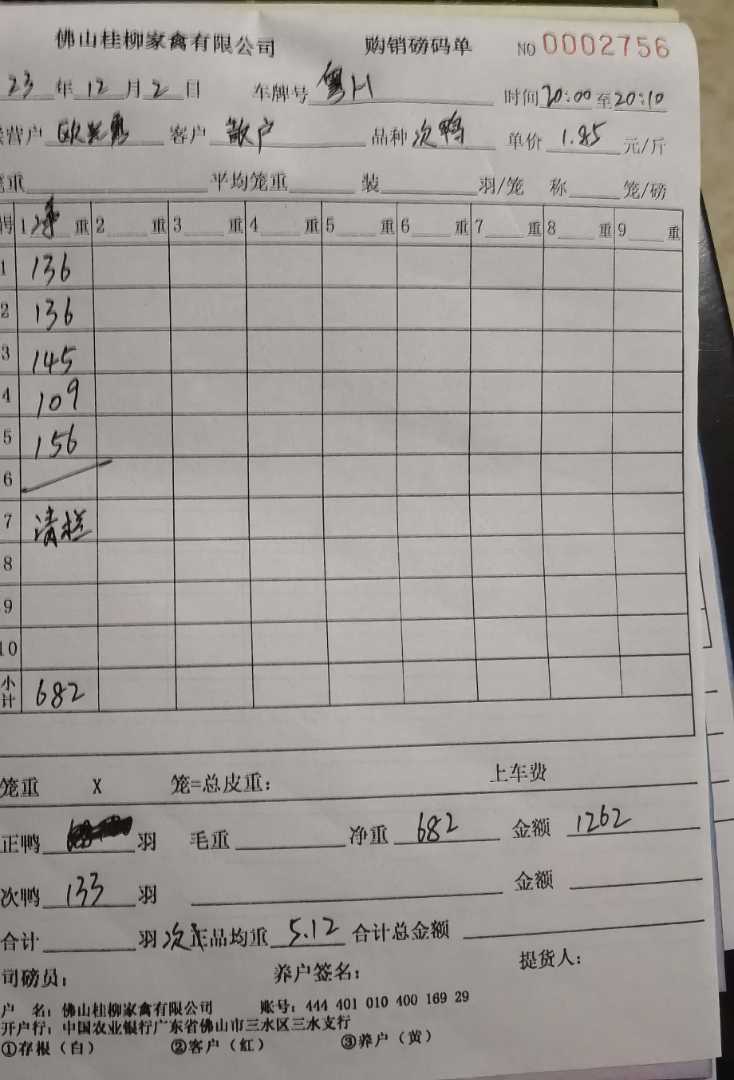 佛山桂柳家禽有限公司 购销磅码单 NO 0002756
23 年 12 月 2 日 车牌号 粤H 时间 20:00 至 20:10
营户 欧 客户 散户 品种 次鸭 单价 1.85 元/斤
重 平均笼重 装 羽/笼 称 笼/磅
1 净 重 2 重 3 重 4 重 5 重 6 重 7 重 8 重 9 重
1 136
2 136
3 145
4 109
5 156
6
7 清栏
8
9
10
小计 682
笼重 X 笼=总皮重: 上车费
正鸭 羽 毛重 净重 682 金额 1262
次鸭 133 羽 金额
合计 羽 次品均重 5.12 合计总金额
司磅员: 养户签名: 提货人:
户 名: 佛山桂柳家禽有限公司 账号: 444 401 010 400 169 29
开户行: 中国农业银行广东省佛山市三水区三水支行
①存根（白） ②客户（红） ③养户（黄）